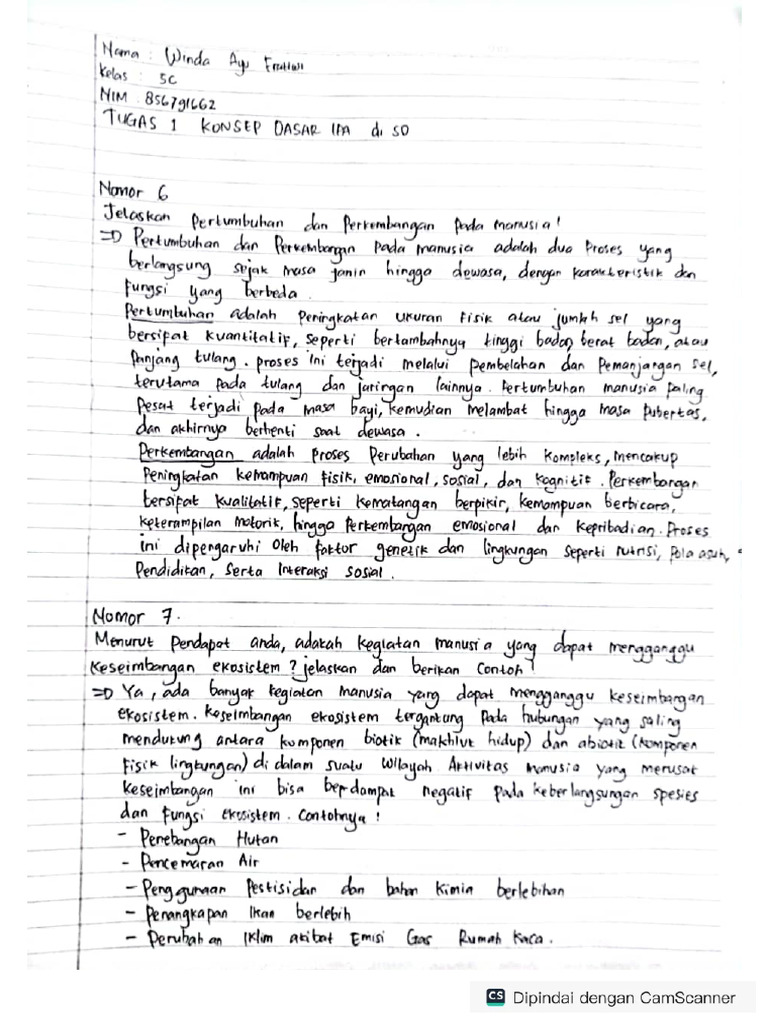 Nama : Winda Ayu Fratiwi
Kelas : 5C
NIM 856791662
TUGAS 1 KONSEP DASAR IPA di SD
Nomor 6
Jelaskan Pertumbuhan dan Perkembangan Pada manusia!
=D Pertumbuhan dan Perkembangan Pada manusia adalah dua Proses yang
berlangsung sejak masa janin hingga dewasa, dengan karakteristik dan
fungsi yang berbeda.
Pertumbuhan adalah Peningkatan ukuran Fisik atau jumlah sel yang
bersipat kuantitatif, seperti bertambahnya tinggi badan, berat badan, atau
Panjang tulang. proses ini terjadi melalui pembelahan dan Pemanjangan sel,
terutama pada tulang dan jaringan lainnya. Pertumbuhan manusia paling
Pesat terjadi pada masa bayi, kemudian melambat hingga masa pubertas,
dan akhirnya berhenti saat dewasa.
Perkembangan adalah proses Perubahan yang lebih kompleks, mencakup
Peningkatan kemampuan fisik, emosional, sosial, dan kognitif. Perkembangan
bersipat kualitatif, seperti kematangan berpikir, kemampuan berbicara,
keterampilan motorik, hingga Perkembangan emosional dan kepribadian. Proses
ini dipengaruhi Oleh faktor genetik dan lingkungan seperti nutrisi, Pola asuh,
Pendidikan, Serta Interaksi Sosial.
Nomor 7.
Menurut Pendapat anda, adakah kegiatan manusia yang dapat mengganggu
keseimbangan ekosistem? jelaskan dan berikan Contoh!
=D Ya, ada banyak kegiatan manusia yang dapat mengganggu keseimbangan
ekosistem. keseimbangan ekosistem tergantung Pada hubungan yang saling
mendukung antara komponen biotik (makhluk hidup) dan abiotik (komponen
Fisik lingkungan) di dalam suatu wilayah. Aktivitas manusia yang merusak
keseimbangan ini bisa berdampak negatif pada keberlangsungan spesies
dan fungsi Ekosistem. Contohnya!
- Penebangan Hutan
- Pencemaran Air
- Penggunaan Pestisidan dan bahan kimia berlebihan
- Penangkapan Ikan berlebih
- Perubahan Iklim akibat Emisi Gas Rumah Kaca.
CS Dipindai dengan CamScanner